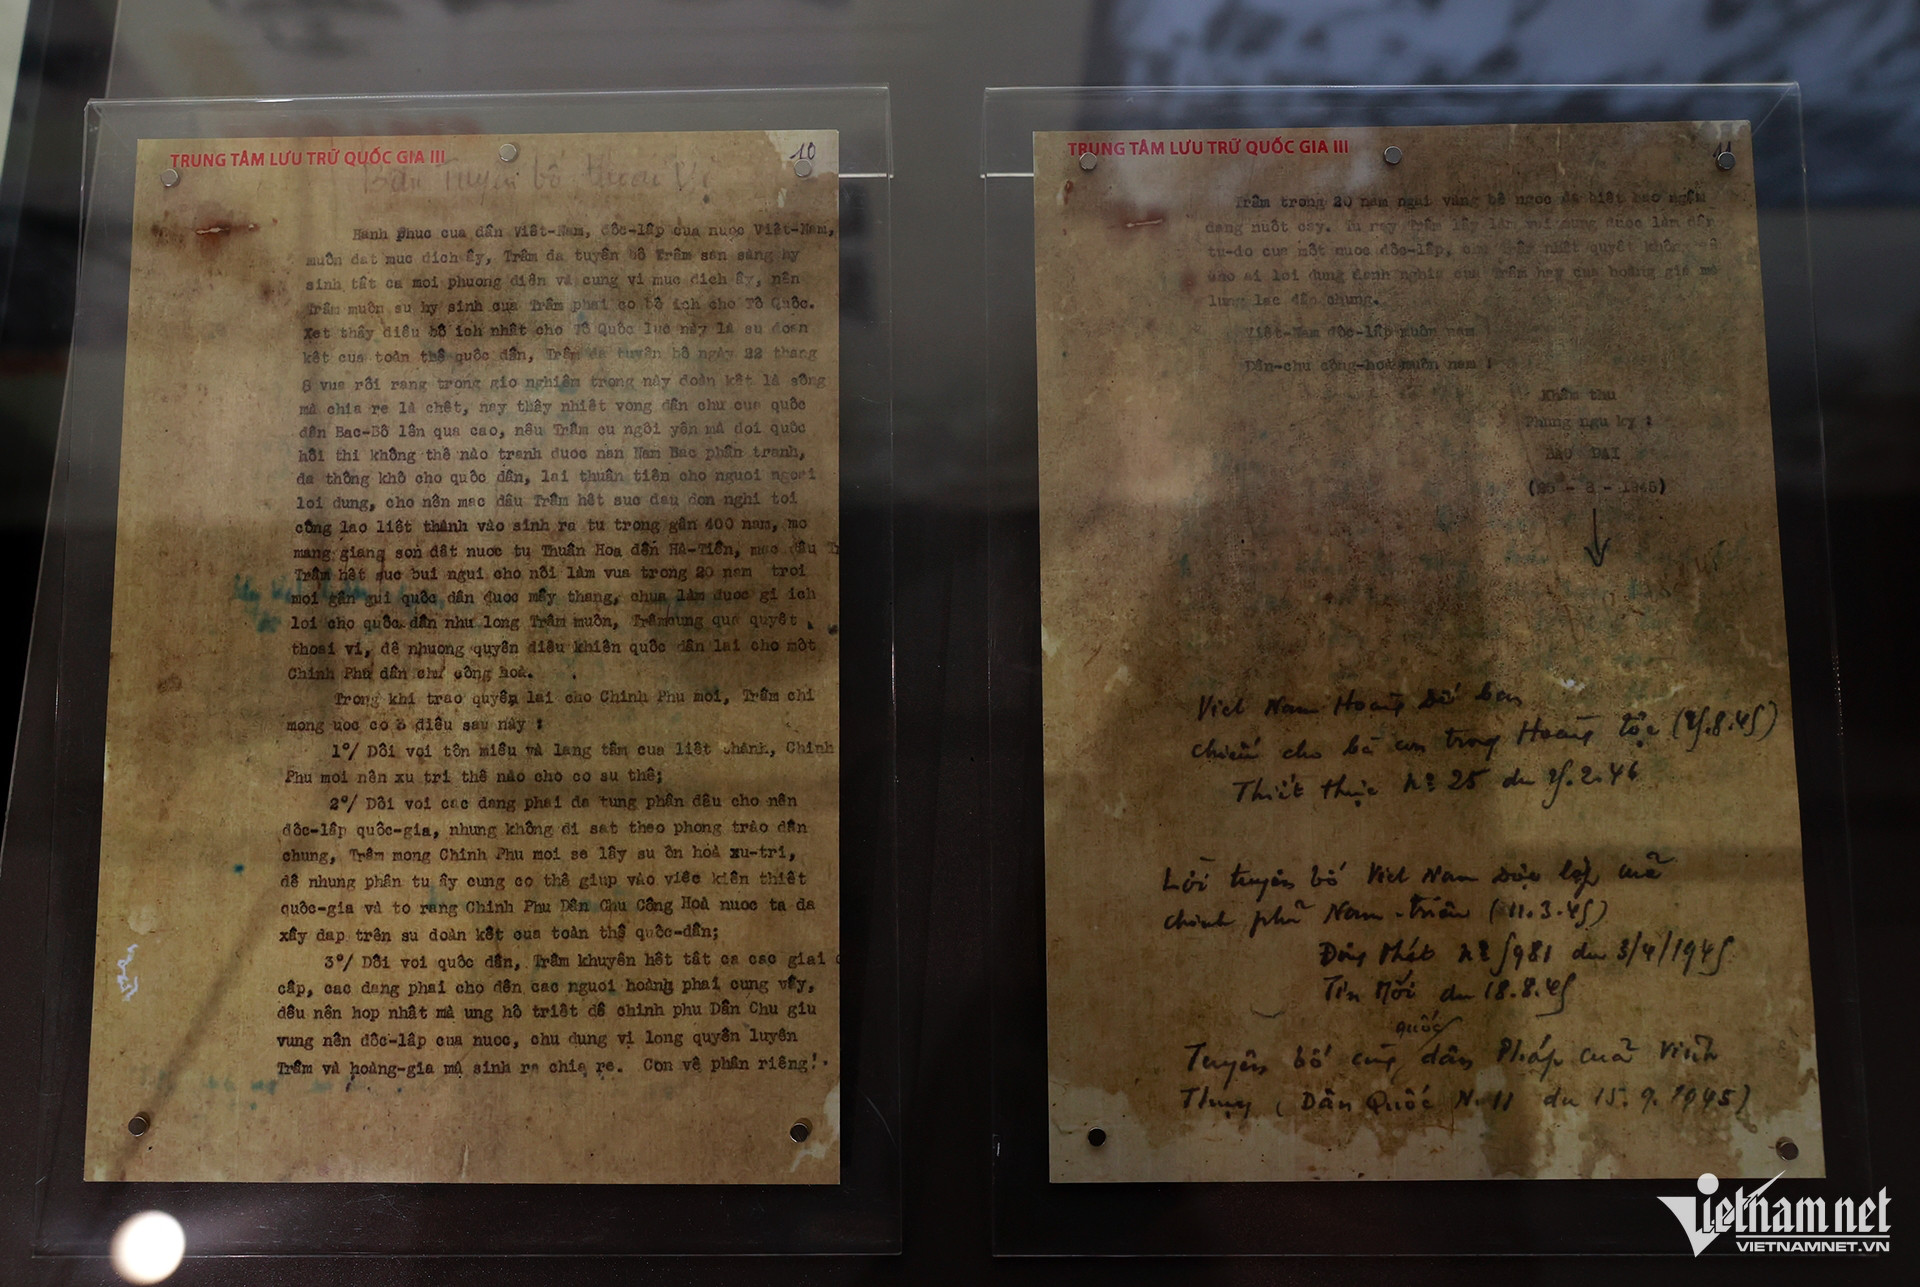 TRUNG TÂM LƯU TRỮ QUỐC GIA III
10
Bản Tuyên bố thoái vị
Hanh phuc cua dân Viêt-Nam, đôc-lâp cua nuoc Viêt-Nam,
muôn dat muc dich ây, Trâm da tuyên bô Trâm san sang hy
sinh tât ca moi phuong diên và cung vi muc dich ây, nên
Trâm muôn su hy sinh cua Trâm phai co bô ich cho Tô Quôc.
Xet thây diêu bô ich nhât cho Tô Quôc luc này là su doan
kêt cua toàn thê quôc dân, Trâm da tuyên bô ngày 22 thang
8 vua rôi rang trong gio nghiêm trong này doàn kêt là sông
mà chia re là chêt, nay thây nhiêt vong dân chu cua quôc
dân Bac-Bô lên qua cao, nêu Trâm cu ngôi yên mà doi quôc
hôi thi không thê nào tranh duoc nan Nam Bac phân tranh,
da thông khô cho quôc dân, lai thuân tiên cho nguoi ngoai
loi dung, cho nên mac dâu Trâm hêt suc dau don nghi toi
công lao liêt thánh vào sinh ra tu trong gân 400 nam, mo
mang giang son dât nuoc tu Thuân Hoa dên Hà-Tiên, mac dâu Tr
Trâm hêt suc bui ngui cho nôi làm vua trong 20 nam troi
moi gân gui quôc dân duoc mây thang, chua làm duoc gi ich
loi cho quôc dân nhu long Trâm muôn, Trâmcung qua quyêt
thoai vi, dê nhuong quyên diêu khiên quôc dân lai cho môt
Chinh Phu dân chu công hoà.
Trong khi trao quyên lai cho Chinh Phu moi, Trâm chi
mong uoc co 3 diêu sau này :
1°/ Dôi voi tôn miêu và lang tâm cua liêt thánh, Chinh
Phu moi nên xu tri thê nào cho co su thê;
2°/ Dôi voi cac dang phai da tung phân dâu cho nên
dôc-lâp quôc-gia, nhung không di sat theo phong trào dân
chung, Trâm mong Chinh Phu moi se lây su ôn hoà xu-tri,
dê nhung phân tu ây cung co thê giup vào viêc kiên thiêt
quôc-gia và to rang Chinh Phu Dân Chu Công Hoà nuoc ta da
xây dap trên su doàn kêt cua toàn thê quôc-dân;
3°/ Dôi voi quôc dân, Trâm khuyên hêt tât ca cac giai
câp, cac dang phai cho dên cac nguoi hoàng phai cung vây,
dêu nên hop nhât mà ung hô triêt dê chinh phu Dân Chu giu
vung nên dôc-lâp cua nuoc, chu dung vi long quyên luyên
Trâm và hoàng-gia mà sinh ra chia re. Con vê phân riêng!
TRUNG TÂM LƯU TRỮ QUỐC GIA III
11
Trâm trong 20 nam ngai vàng bê ngoc da biêt bao ngâm
dang nuôt cay. Tu nay Trâm lây làm vui cung duoc làm dân
tu-do cua môt nuoc dôc-lâp, chu Trâm nhât quyêt không dê
cho ai loi dung danh nghia cua Trâm hay cua hoàng gia mà
lung lac dân chung.
Viêt-Nam dôc-lâp muôn nam !
Dân-chu công-hoà muôn nam !
Khâm thu
Phung ngu ky :
BAO DAI
(25 - 8 - 1945)
Việt Nam Hoàng Đế ban
chiếu cho bà con trong Hoàng tộc (25.8.45)
Thiết thực Nº 25 du 25.2.46
Lời tuyên bố Việt Nam Độc lập của
chính phủ Nam-triều (11.3.45)
Đông Phát Nº 5981 du 3/4/1945
Tin Mới du 18.8.45
Tuyên bố cùng quốc dân Pháp của Vĩnh
Thụy (Dân Quốc N. 11 du 15.9.1945)
Vietnamnet
VIETNAMNET.VN